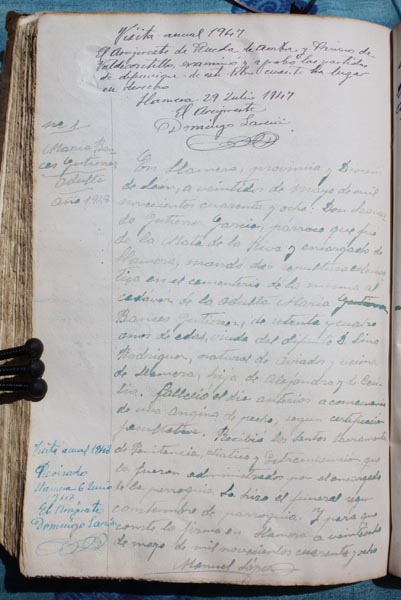 Visita anual 1947
El Arcipreste de Rueda de
Valdetuéjar, examinó y aprobó las partidas
de defunción de este libro cuanto ha lugar
en derecho
Llamera, 29 Julio 1947
El Arcipreste
Domingo García
nº 1
María Ban-
ces Gutiérrez
Adulta
Año 1948
En Llamera, provincia y Diócesis
de León, a veintidós de mayo de mil
novecientos cuarenta y ocho: Don
Gutiérrez García, párroco
de la Mata de la Riva y encargado de
Llamera, mandé dar sepultura eclesiás-
tica en el cementerio de la misma al
cadáver de la adulta María
Bances Gutiérrez, de setenta y cuatro
años de edad, viuda del difunto D. Lino
Rodríguez, natural de y vecina
de Llamera, hija de Alejandro y de
Falleció el día anterior a consecuencia
de una angina de pecho, según certificación
facultativa. Recibió los Santos Sacramentos
de Penitencia, Viático y Extremaunción que
le fueron administrados por el encargado
de la parroquia. Se hizo el funeral según
costumbre de parroquia. Y para que
conste lo firmo en Llamera a veintidós
de mayo de mil novecientos cuarenta y ocho
Manuel López
Visita anual 1948
Revisado
Llamera 6 Junio
1948
El Arcipreste
Domingo García